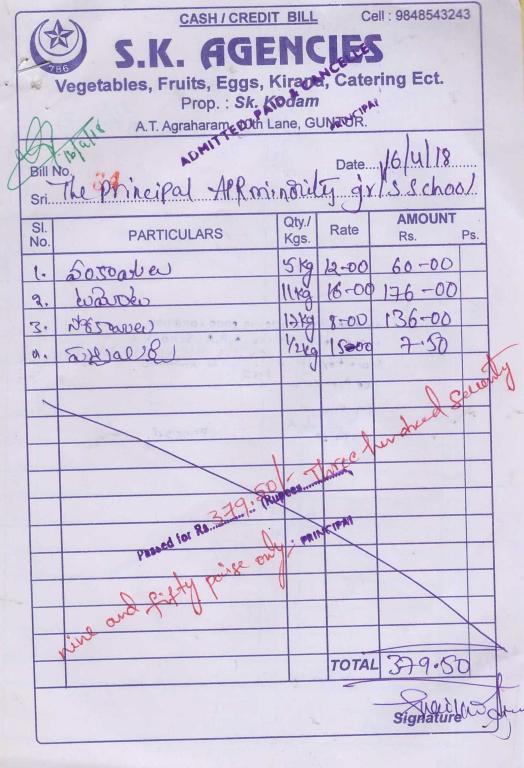 CASH / CREDIT BILL
Cell : 9848543243
786
S.K. AGENCIES
Vegetables, Fruits, Eggs, Kirana, Catering Ect.
Prop. : Sk. Kodam
A.T. Agraharam, th Lane, GUNTUR.
ADMITTED, PAID & CANCELLE
PRINCIPAL
16/4/18
Bill No.
Date 16/4/18
Sri. The principal APR minority girls School
Sl. No. PARTICULARS Qty./ Kgs. Rate AMOUNT Rs. Ps.
1. వంకాయలు 5kg 12-00 60-00
2. టమాటలు 11kg 16-00 176-00
3. 17kg 8-00 136-00
4. 1/2kg 15-00 7.50
Passed for Rs. 379.50/- (Rupees Three hundred Seventy
nine and fifty paise only.
PRINCIPAL
TOTAL 379.50
Signature